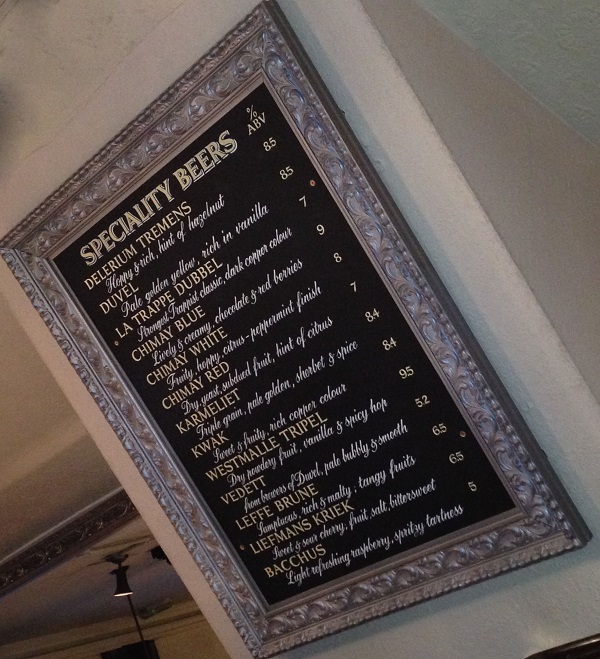 SPECIALITY BEERS % ABV
DELERIUM TREMENS 8.5
Hoppy & rich, hint of hazelnut
DUVEL 8.5
Pale golden yellow, rich in vanilla
LA TRAPPE DUBBEL 7
Strongest Trappist classic, dark copper colour
CHIMAY BLUE 9
Lively & creamy, chocolate & red berries
CHIMAY WHITE 8
Fruity, hoppy - citrus-peppermint finish
CHIMAY RED 7
Dry, yeast, subdued fruit, hint of citrus
KARMELIET 8.4
Triple grain, pale golden, sherbet & spice
KWAK 8.4
Sweet & fruity, rich copper colour
WESTMALLE TRIPEL 9.5
Dry powdery fruit, vanilla & spicy hop
VEDETT 5.2
from brewers of Duvel, pale bubbly & smooth
LEFFE BRUNE 6.5
Sumptuous, rich & malty; tangy fruits
LIEFMANS KRIEK 6.5
Sweet & sour cherry, fruit, salt, bittersweet
BACCHUS 5
Light refreshing raspberry, spritzy tartness